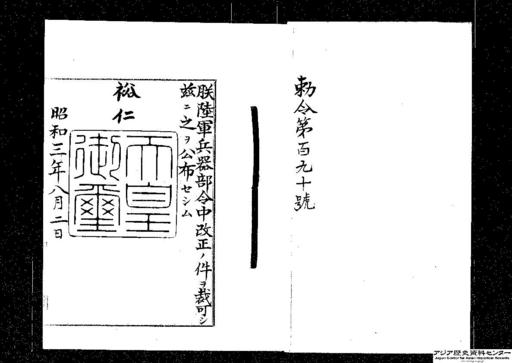 勅令第百九十號
朕陸軍兵器部令中改正ノ件ヲ裁可シ
玆ニ之ヲ公布セシム
裕仁
天皇御璽
昭和三年八月二日
アジア歴史資料センター
Japan Center for Asian Historical Records